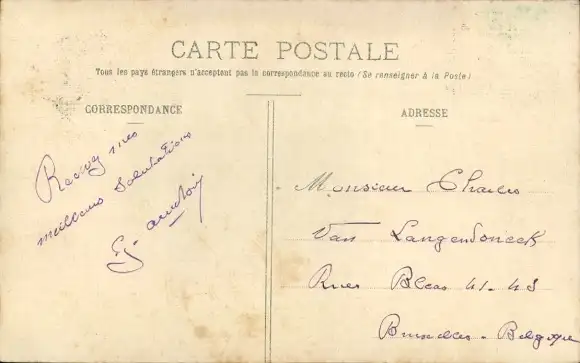 CARTE POSTALE
Tous les pays étrangers n'acceptent pas la correspondance au recto (Se renseigner à la Poste)
CORRESPONDANCE
ADRESSE
Recevez mes
meilleures salutations
Monsieur Charles
Van Langendonck
Rues Blaes 41-43
Bruxelles - Belgique